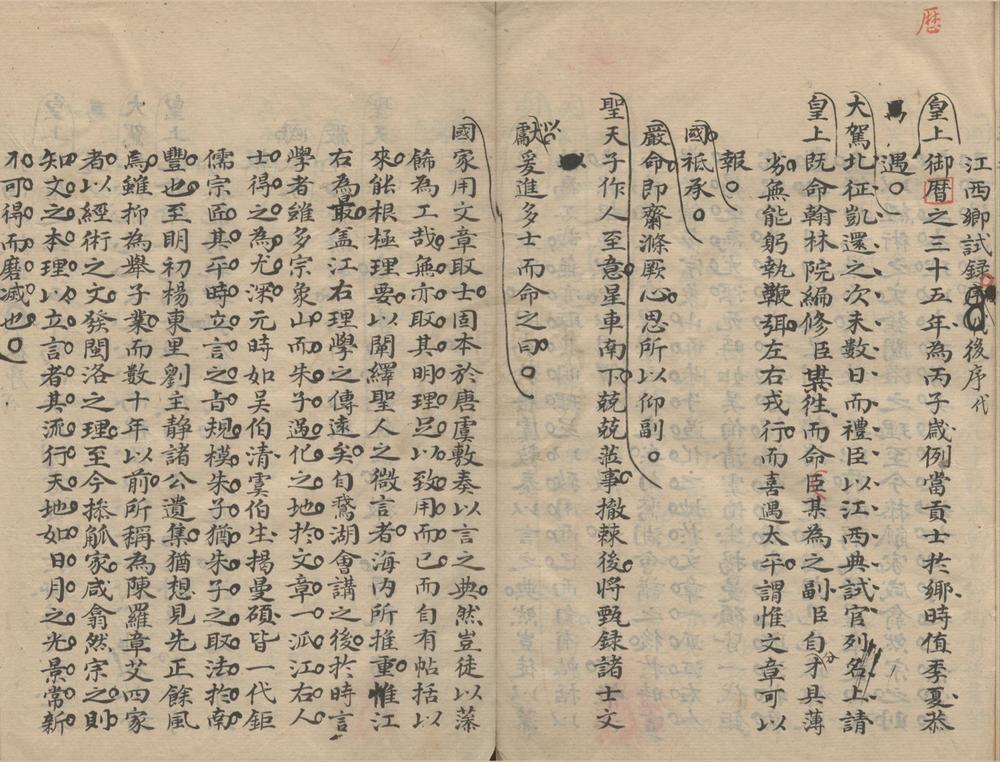 曆
江西鄉試録後序代
皇上御曆之三十五年為丙子歲例當貢士於鄉時值季夏恭
遇
大駕北征凱還之次未數日而禮臣以江西典試官列名上請
皇上既命翰林院編修臣某徃而命臣某為之副臣自分具薄
劣無能躬執鞭弭左右戎行而喜遇太平謂惟文章可以
報
國祗承
嚴命即齋滌厥心思所以仰副
聖天子作人至意星車南下兢兢蒞事撤棘後將甄録諸士文
以
獻爰進多士而命之曰
國家用文章取士固本於唐虞敷奏以言之典然豈徒以藻
飾為工哉無亦取其明理足以致用而已而自有帖括以
來能根極理要以闡繹聖人之微言者海内所推重惟江
右為最盖江右理學之傳遠矣自鵞湖會講之後於時言
學者雖多宗象山而朱子過化之地於文章一派江右人
士得之為尤深元時如吴伯清虞伯生揭曼碩皆一代鉅
儒宗匠其平時立言之㫖規模朱子猶朱子之取法於南
豐也至明初楊東里劉主静諸公遺集猶想見先正餘風
焉雖抑為舉子業而數十年以前所稱為陳羅章艾四家
者以經術之文發閩洛之理至今操觚家咸翕然宗之則
知文之本理以立言者其流行天地如日月之光景常新
不可得而磨滅也